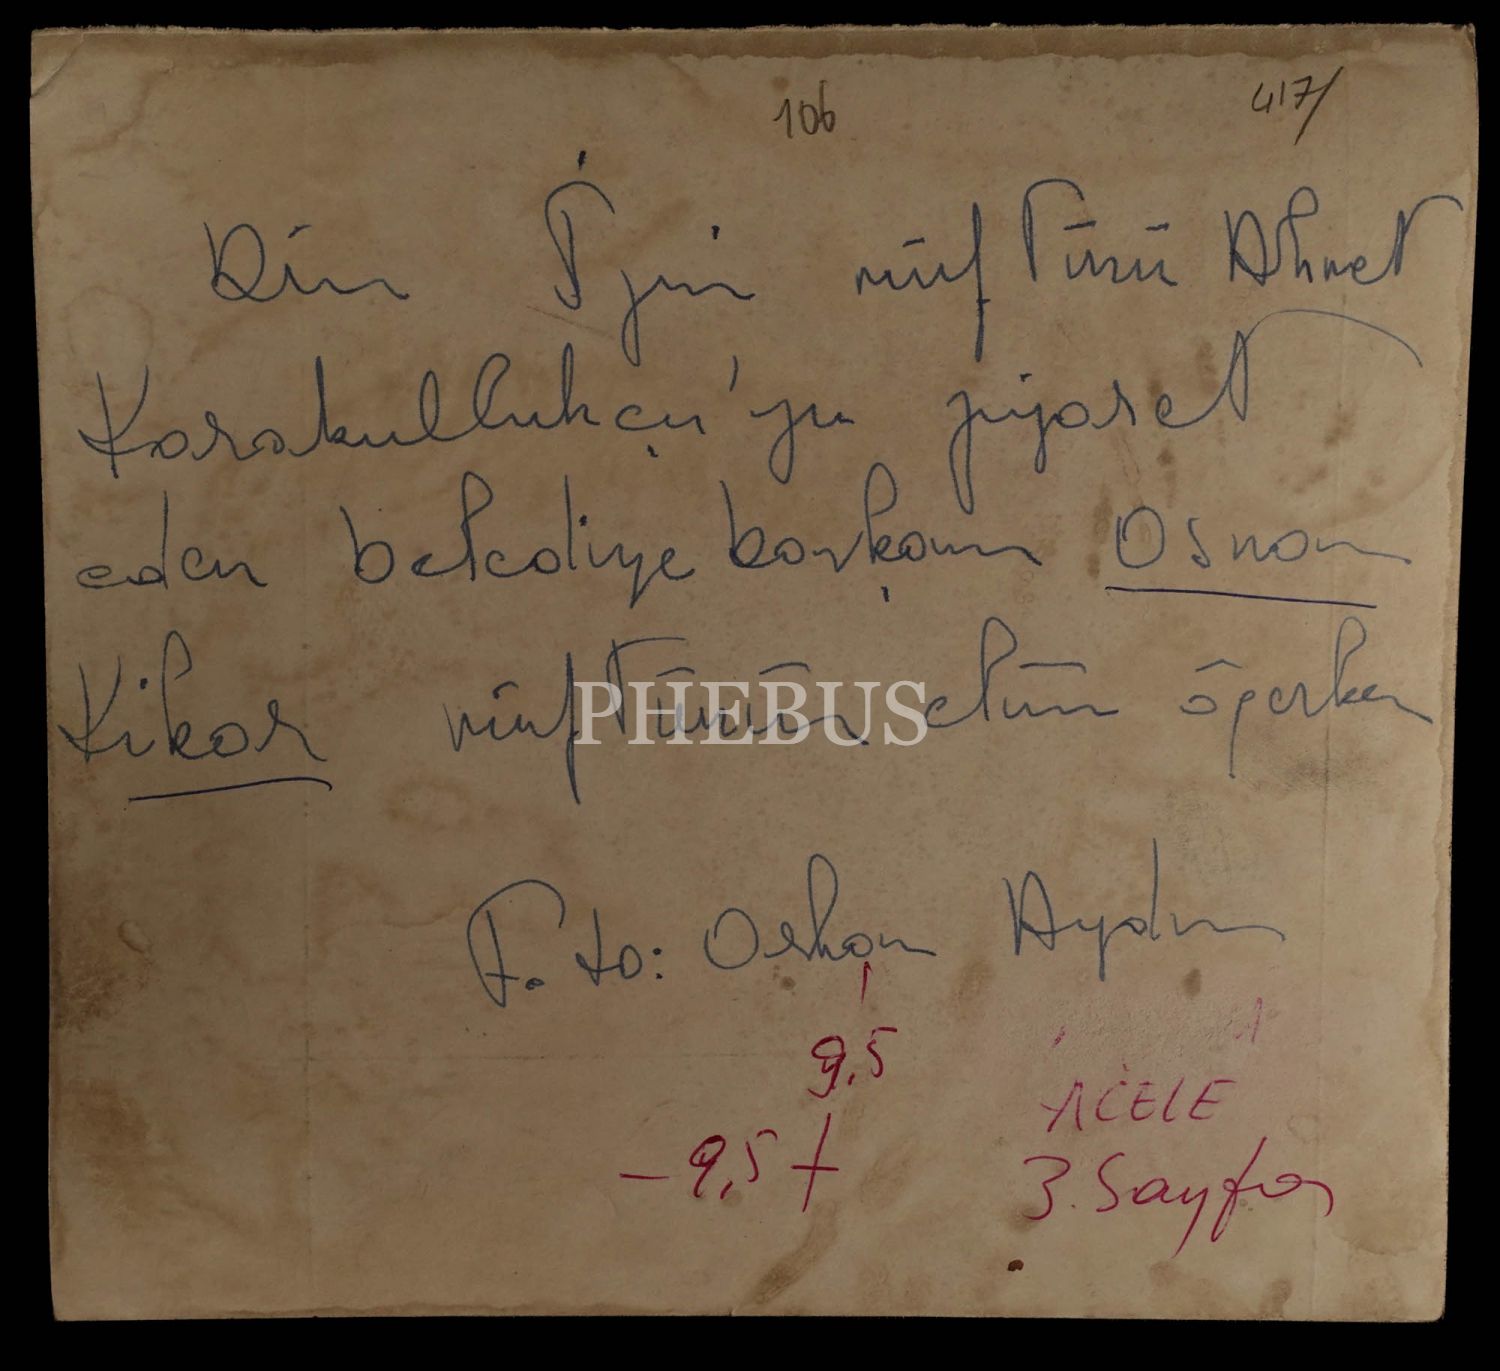 106
417/
Din İşin müftüsü Ahmet
Karakullukçu'yu ziyaret
eden belediye başkanı Osman
Kibar müftünün elini öperken
PHEBUS
Foto: Orhan Aydın
9,5
- 9,5 +
ACELE
3. Sayfa